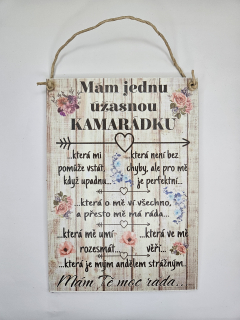 Mám jednu
úžasnou
KAMARÁDKU
...která mi
pomůže vstát,
když upadnu...
...která není bez
chyby, ale pro mě
je perfektní...
...která o mě ví všechno,
a přesto mě má ráda...
...která mě umí
rozesmát...
...která ve mě
věří...
...která je mým andělem strážným...
Mám Tě moc ráda...